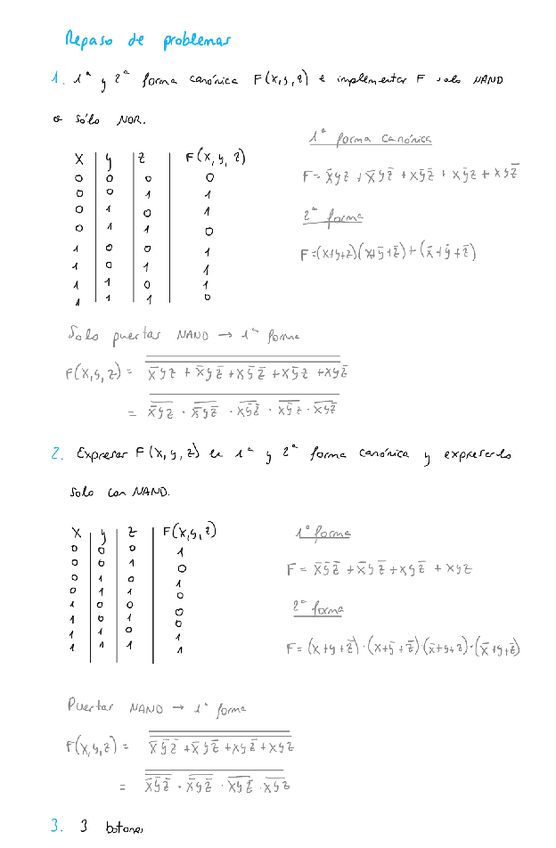 Repaso de problemas
1. 1ª y 2ª forma canónica F(x,y,z) e implementar F solo NAND
o sólo NOR.
x y z F(x,y,z)
0 0 0 0
0 0 1 1
0 1 0 1
0 1 1 0
1 0 0 1
1 0 1 1
1 1 0 1
1 1 1 0
1ª forma canónica
F = x̄ȳz + x̄yz̄ + xȳz̄ + xȳz + xyz̄
2ª forma
F = (x+y+z)(x+ȳ+z̄)+(x̄+ȳ+z̄)
Solo puertas NAND → 1ª forma
F(x,y,z) = x̄ȳz + x̄yz̄ + xȳz̄ + xȳz + xyz̄
= x̄ȳz · x̄yz̄ · xȳz̄ · xȳz · xyz̄
2. Expresar F(x,y,z) en 1ª y 2ª forma canónica y expresarlo
solo con NAND.
x y z F(x,y,z)
0 0 0 1
0 0 1 0
0 1 0 1
0 1 1 0
1 0 0 0
1 0 1 0
1 1 0 1
1 1 1 1
1ª forma
F = x̄ȳz̄ + x̄yz̄ + xyz̄ + xyz
2ª forma
F = (x+y+z̄)·(x+ȳ+z̄)·(x̄+y+z)·(x̄+y+z̄)
Puertas NAND → 1ª forma
F(x,y,z) = x̄ȳz̄ + x̄yz̄ + xyz̄ + xyz
= x̄ȳz̄ · x̄yz̄ · xyz̄ · xyz
3. 3 botones